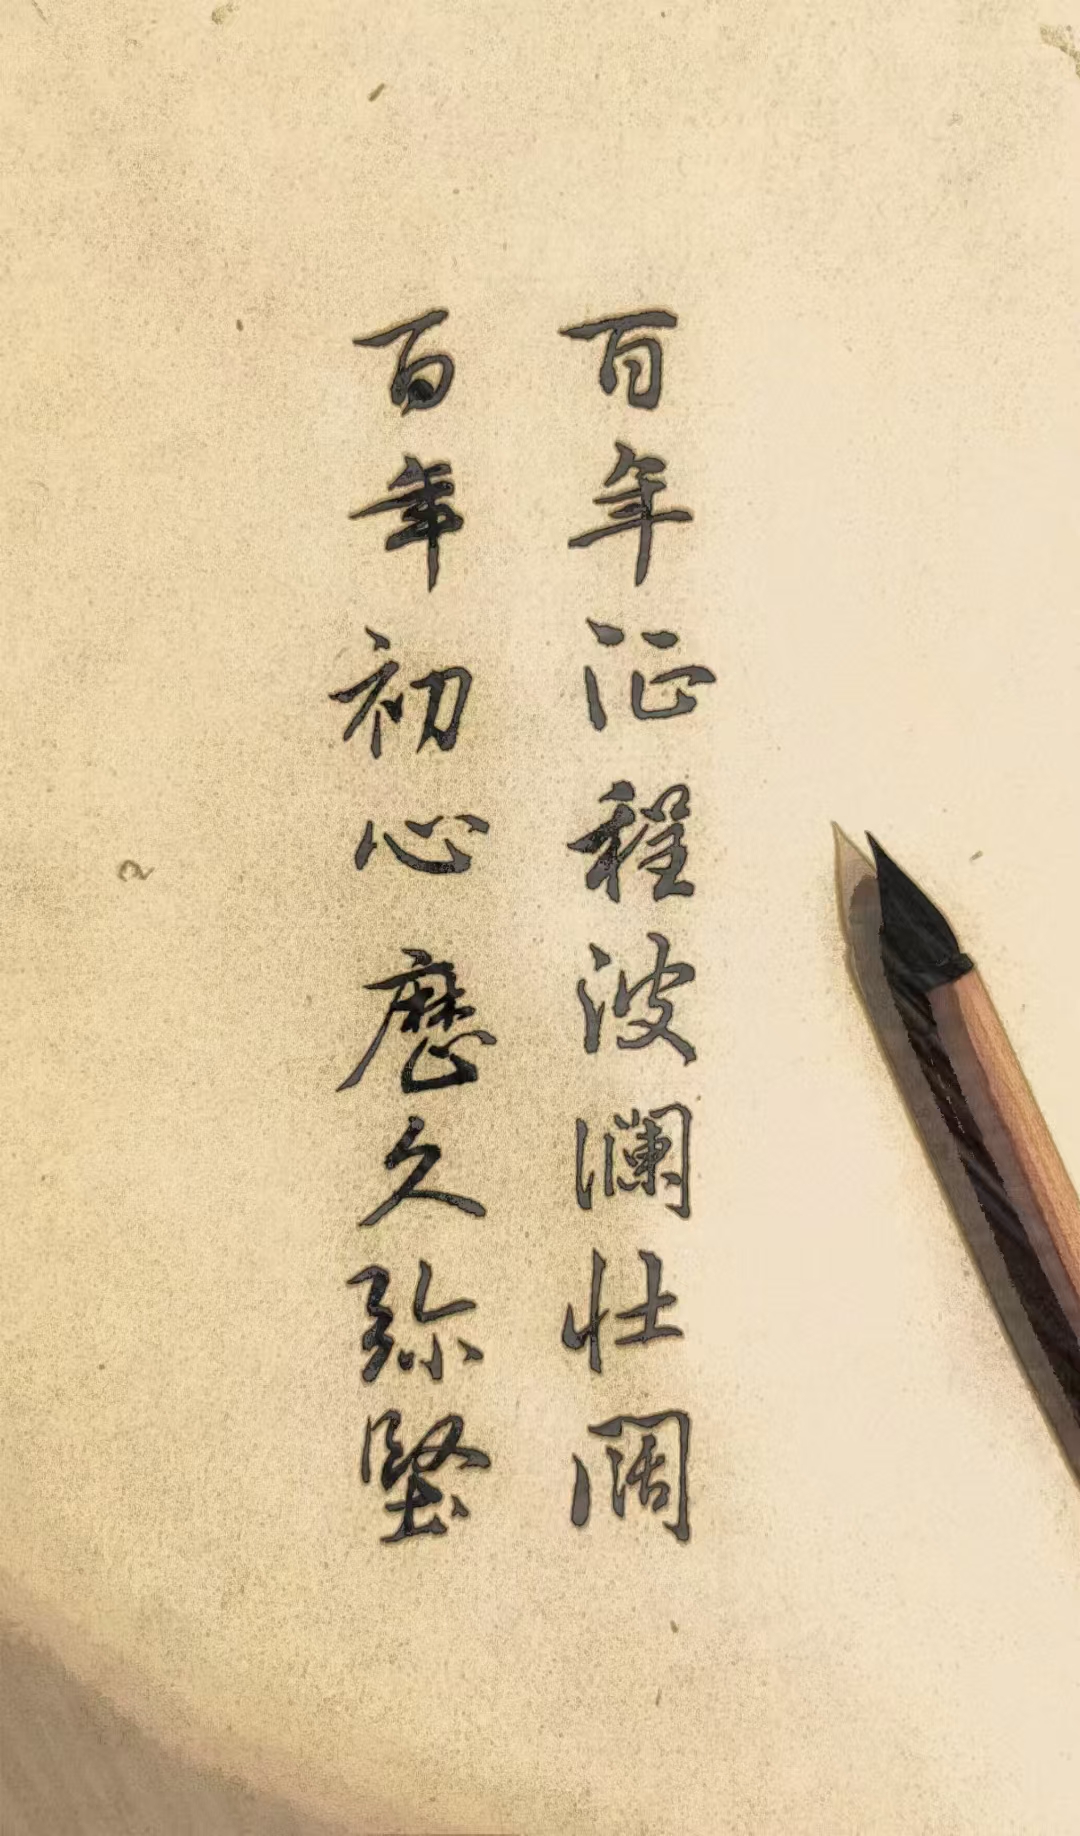 百年征程波澜壮阔
百年初心历久弥坚